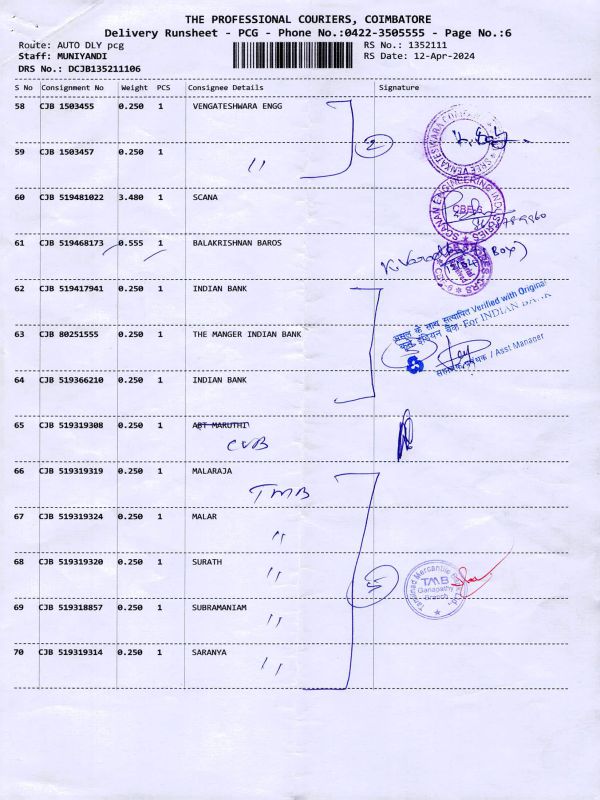 THE PROFESSIONAL COURIERS, COIMBATORE
Delivery Runsheet - PCG - Phone No.:0422-3505555 - Page No.:6
Route: AUTO DLY pcg
RS No.: 1352111
Staff: MUNIYANDI
RS Date: 12-Apr-2024
DRS No.: DCJB135211106
S No Consignment No Weight PCS Consignee Details Signature
58 CJB 1503455 0.250 1 VENGATESHWARA ENGG
2
59 CJB 1503457 0.250 1
"
60 CJB 519481022 3.480 1 SCANA
SCANAN ENGINEERING INDUSTRIES
CBE-6
61 CJB 519468173 0.555 1 BALAKRISHNAN BAROS
(Box)
62 CJB 519417941 0.250 1 INDIAN BANK
असल के साथ सत्यापित Verified with Original
कृते इंडियन बैंक For INDIAN BANK
63 CJB 80251555 0.250 1 THE MANGER INDIAN BANK
3
सहायक प्रबंधक / Asst Manager
64 CJB 519366210 0.250 1 INDIAN BANK
65 CJB 519319308 0.250 1 ABT MARUTHI
CUB
66 CJB 519319319 0.250 1 MALARAJA
TMB
67 CJB 519319324 0.250 1 MALAR
"
68 CJB 519319320 0.250 1 SURATH
"
5
Tamilnad Mercantile Bank Ltd.
TMB
Ganapathy
Branch
69 CJB 519318857 0.250 1 SUBRAMANIAM
"
70 CJB 519319314 0.250 1 SARANYA
"